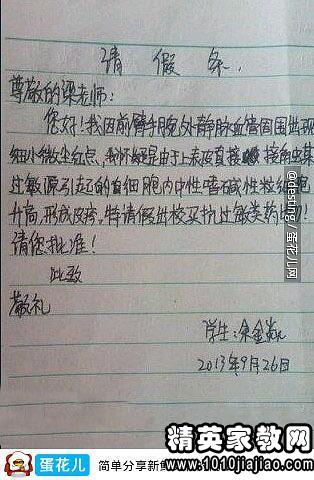 请假条
尊敬的梁老师:
您好!我因前臂手腕处静脉血管周围出现
细小微尘红点,我怀疑是由于上表皮直接接触某
过敏源引起的白细胞内中性嗜碱性粒细胞
升高,形成皮疹,特请假出校买抗过敏类药物!
请您批准!
此致
敬礼
学生:余金
2013年9月26日
@destiny / 蛋花儿网
蛋花儿 简单分享新鱼
精英家教网
www.1010jiajiao.com